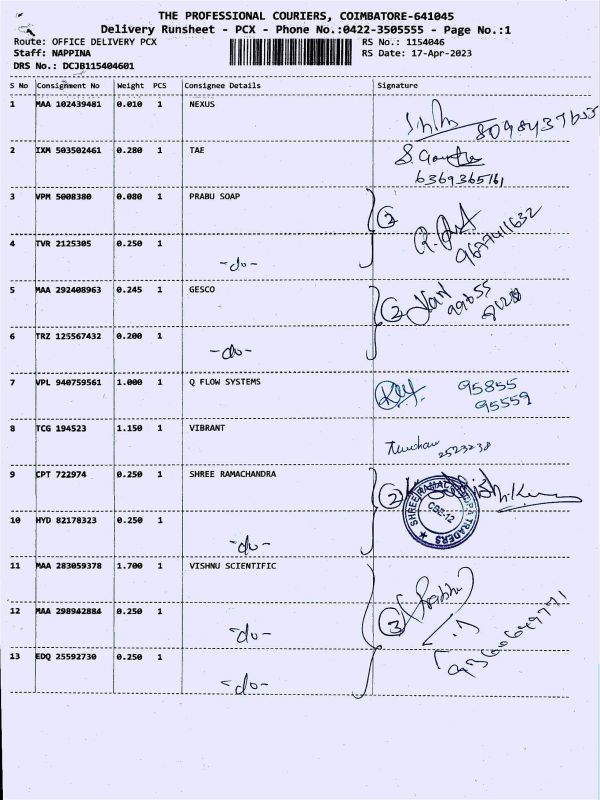 THE PROFESSIONAL COURIERS, COIMBATORE-641045
Delivery Runsheet - PCX - Phone No.:0422-3505555 - Page No.:1
Route: OFFICE DELIVERY PCX RS No.: 1154046
Staff: NAPPINA RS Date: 17-Apr-2023
DRS No.: DCJB115404601
S No Consignment No Weight PCS Consignee Details Signature
1 MAA 102439481 0.010 1 NEXUS
2 IXM 503502461 0.280 1 TAE
6369365161
3 VPM 5008380 0.080 1 PRABU SOAP
2
9677411632
4 TVR 2125305 0.250 1 -do-
5 MAA 292408963 0.245 1 GESCO
2
99655
6 TRZ 125567432 0.200 1 -do-
7 VPL 940759561 1.000 1 Q FLOW SYSTEMS
95855
95559
8 TCG 194523 1.150 1 VIBRANT
2523238
9 CPT 722974 0.250 1 SHREE RAMACHANDRA
2
TRADERS
CBE-12
10 HYD 82178323 0.250 1 -do-
11 MAA 283059378 1.700 1 VISHNU SCIENTIFIC
Prabhu
12 MAA 298942884 0.250 1 -do-
3
13 EDQ 25592730 0.250 1 -do-